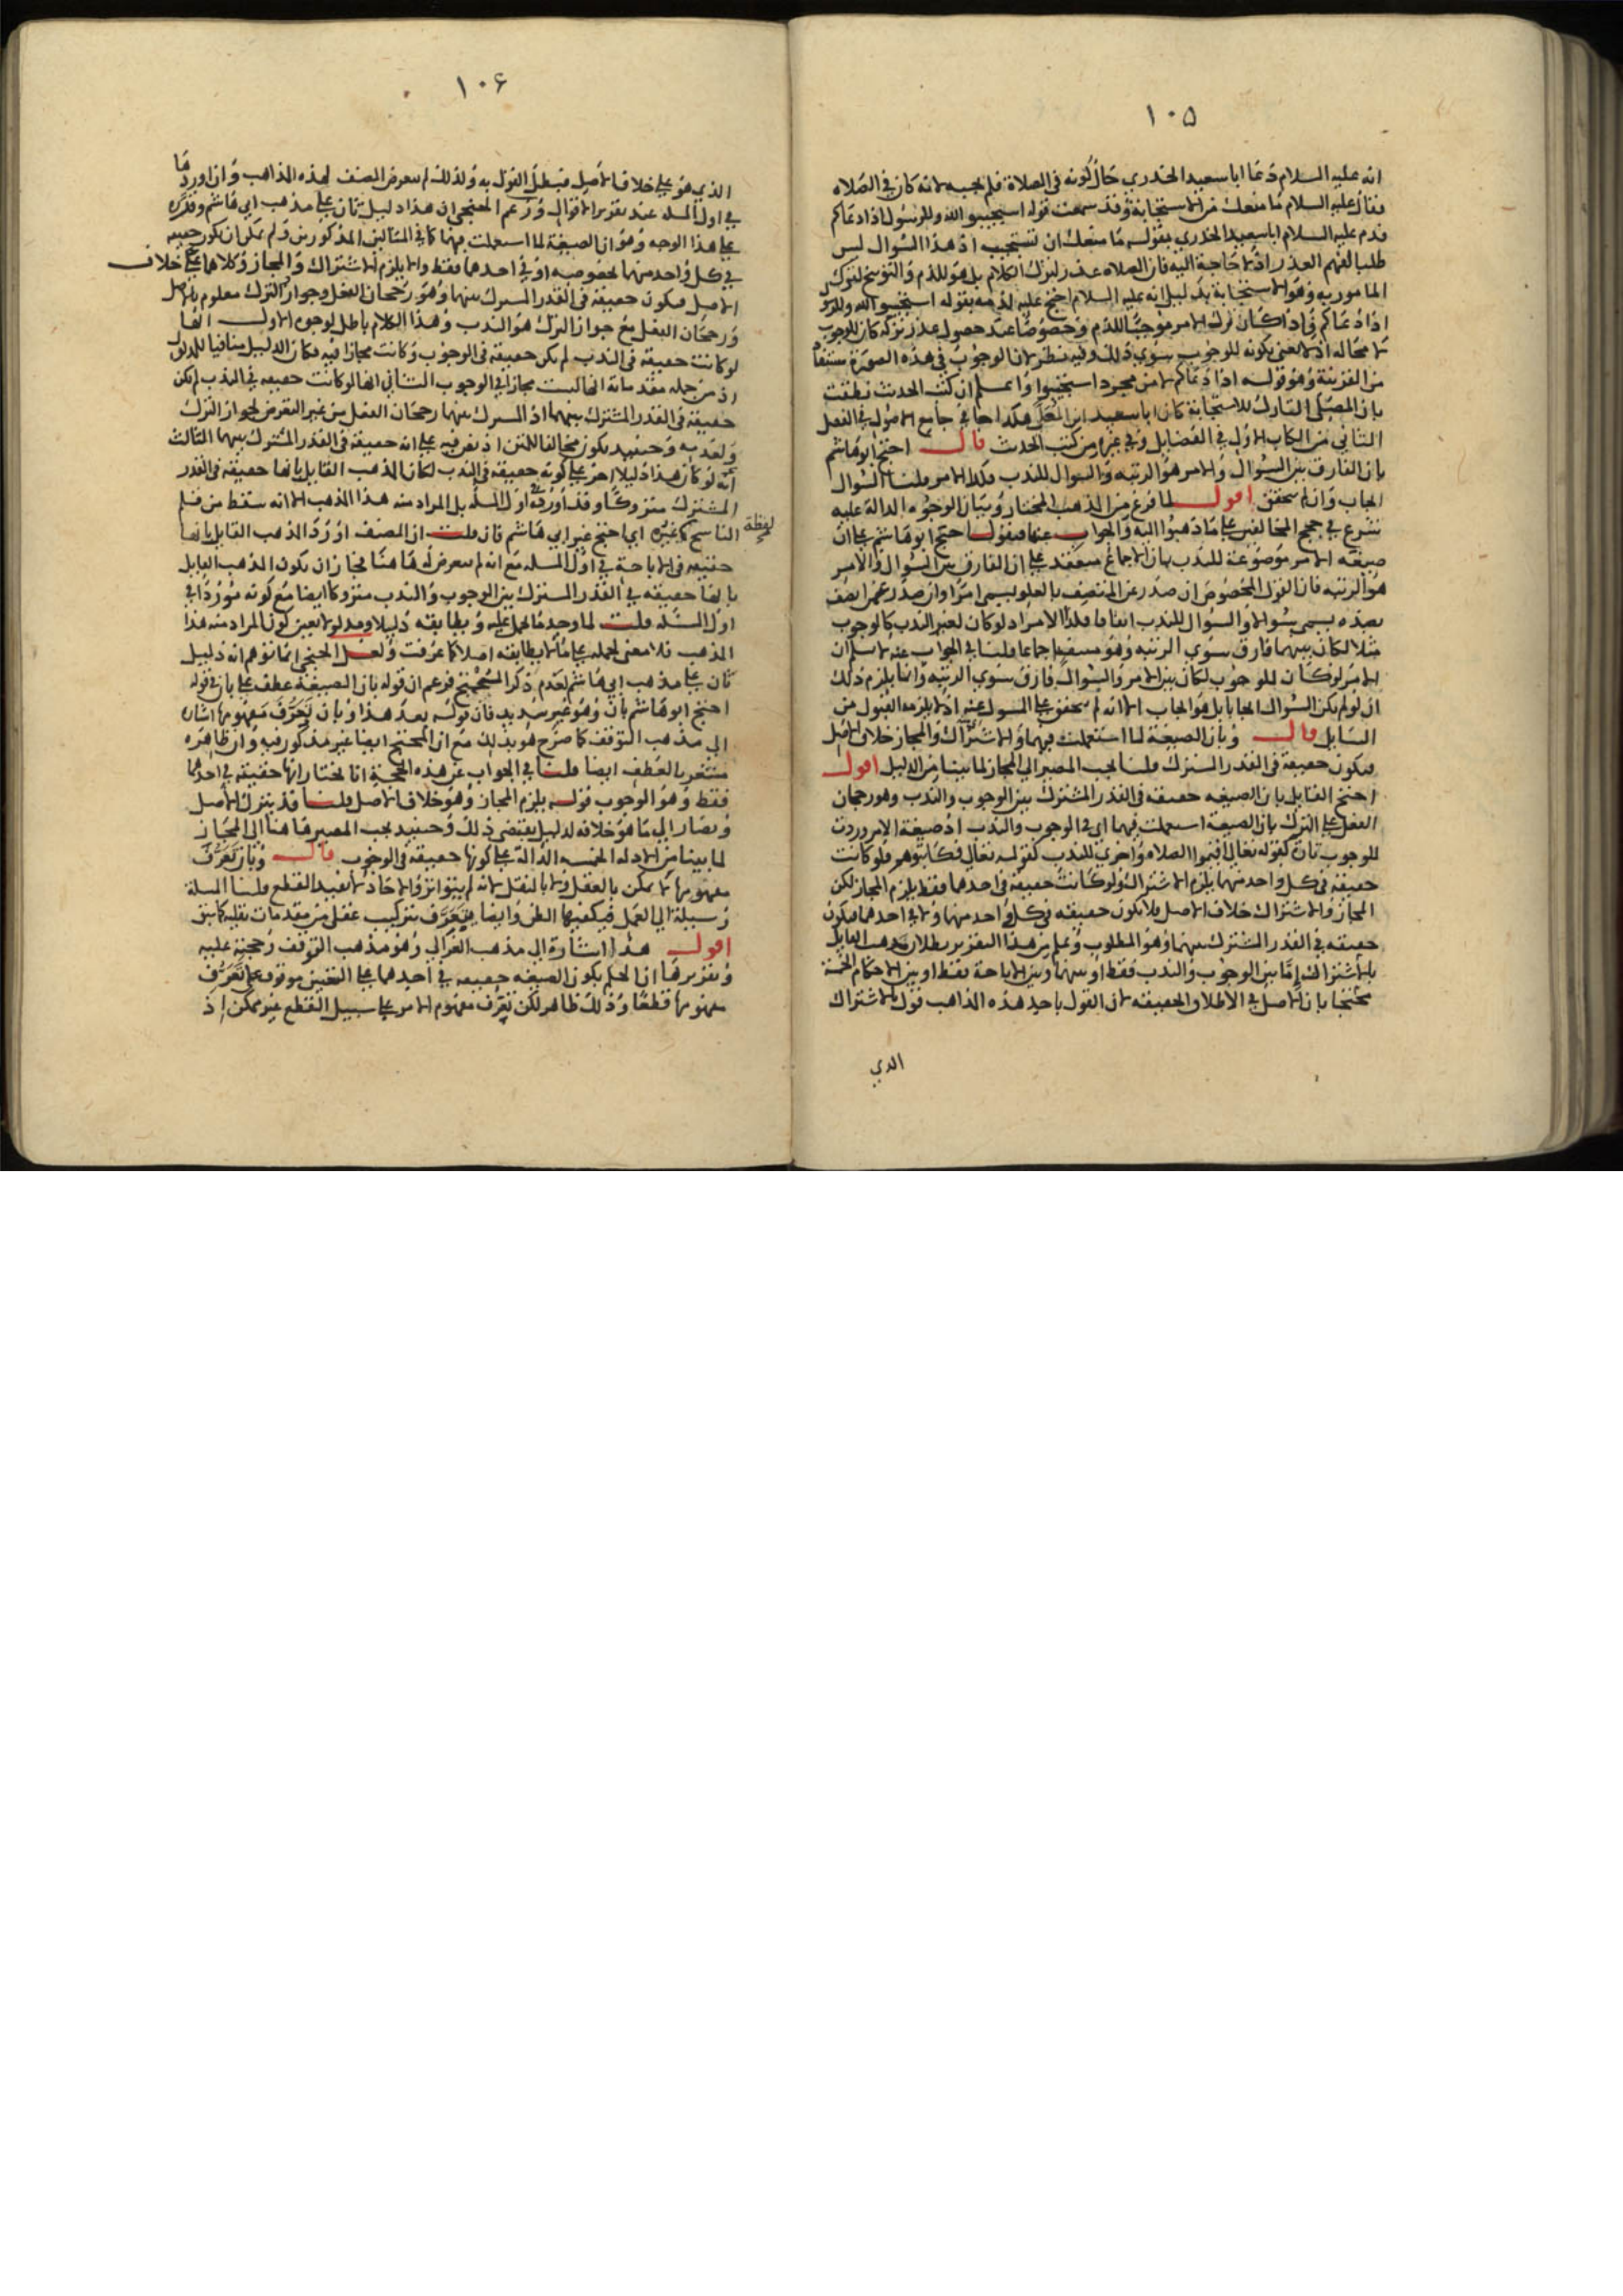 ١٠٥
انه عليه السلام دعا ابا سعيد الخدري حال كونه في الصلاة فلم يجبه لانه كان في الصلاه
فقال عليه السلام ما منعك من الاستجابة وقد سمعت قوله استجيبوا لله وللرسول اذا دعاكم
فدم عليه السلام ابا سعيد الخدري بقوله ما منعك ان تستجيب اذ هذا السوال ليس
طلبا لفهم العذر اذ لا حاجة اليه فان الصلاه عذر لترك الكلام بل هو للذم والتوبيخ لترك
المامور به وهو الاستجابة بدليل انه عليه السلام احتج عليه لذمه بقوله استجيبوا لله وللرسول
اذا دعاكم فاذا كان ترك الامر موجبا للذم وخصوصا عند حصول عذر تركه كان للوجوب
لا محاله اذ لا يعنى بكونه للوجوب سوي ذلك وفيه نظر لان الوجوب في هذه الصورة مستفاد
من القرينة وهو قوله اذا دعاكم لا من مجرد استجيبوا واعلم ان كتب الحديث نطقت
بان المصلى التارك للاستجابة كان ابا سعيد ابن المعلى هكذا جا في جامع الاصول في الفصل
الثاني من الكتاب الاول في الفضايل وفي غيره من كتب الحديث قال احتج ابو هاشم
بان الفارق بين السوال والامر هو الرتبه والسوال للندب فكذا الامر قلنا السوال
ايجاب وان لم يتحقق اقول لما فرغ من المذهب المختار وبيان الوجوه الدالة عليه
شرع في حجج المخالفين على ما ذهبوا اليه والجواب عنها فنقول احتج ابو هاشم على ان
صيغه الامر موضوعة للندب بان الاجماع منعقد على ان الفارق بين السوال والامر
هو الرتبه فان القول المخصوص ان صدر عن المتصف بالعلو يسمى امرا وان صدر عمن اتصف
بضده يسمى سوالا والسوال للندب اتفاقا فكذا الامر اذ لو كان لغير الندب كالوجوب
مثلا لكان بينهما فارق سوي الرتبه وهو منتف اجماعا قلنا في الجواب عنه لا نسلم ان
الامر لو كان للوجوب لكان بين الامر والسوال فارق سوي الرتبه وانما يلزم ذلك
ان لو لم يكن السوال ايجابا بل هو ايجاب الا انه لم يتحقق على المسول عنه اذ لا يلزمه القبول من
السايل قال وبان الصيغة لما استعملت فيهما والاشتراك والمجاز خلاف الاصل
فيكون حقيقة في القدر المشترك قلنا يجب المصير الي المجاز لما بينا من الدليل اقول
احتج القايل بان الصيغه حقيقه في القدر المشترك بين الوجوب والندب وهو رجحان
الفعل على الترك بان الصيغة استعملت فيهما اي في الوجوب والندب اذ صيغة الامر وردت
للوجوب تارة كقوله تعالى اقيموا الصلاه واخري للندب كقوله تعالى فكاتبوهم فلو كانت
حقيقة في كل واحد منهما يلزم الاشتراك ولو كانت حقيقة في احدهما فقط يلزم المجاز لكن
المجاز والاشتراك خلاف الاصل فلا يكون حقيقه في كل واحد منهما ولا في احدهما فيكون
حقيقه في القدر المشترك بينهما وهو المطلوب وعلم من هذا التقرير بطلان مذهب القايل
بالاشتراك إما بين الوجوب والندب فقط او بينهما وبين الاباحة فقط او بين الاحكام الخمسة
محتجا بان الاصل في الاطلاق الحقيقه لان القول باحد هذه المذاهب قول بالاشتراك
الدي
١٠٦
الذي هو على خلاف الاصل فيبطل القول به ولذلك لم يتعرض المصنف لهذه المذاهب وان اوردها
في اول المسله عند تقرير الاقوال وزعم الخنجي ان هذا دليل ثان على مذهب ابي هاشم وقرره
على هذا الوجه وهو ان الصيغة لما استعملت فيهما كما في المثالين المذكورين ولم يمكن ان يكون حقيقه
في كل واحد منهما لخصوصيه او في احدهما فقط والا يلزم الاشتراك والمجاز وكلاهما على خلاف
الاصل فيكون حقيقة في القدر المشترك بينهما وهو رجحان الفعل وجواز الترك معلوم بالاصل
ورجحان الفعل مع جواز الترك هو الندب وهذا الكلام باطل لوجوه الاول انها
لو كانت حقيقة في الندب لم يكن حقيقة في الوجوب وكانت مجازا فيه فكان الدليل منافيا للمدلول
اذ من جمله مقدماته انها ليست مجازا في الوجوب الثاني انها لو كانت حقيقه في الندب لم يكن
حقيقة في القدر المشترك بينهما اذ المشترك بينهما رجحان الفعل من غير التعرض لجواز الترك
وحينيذ يكون مخالفا للمتن اذ نص فيه على انه حقيقة في القدر المشترك بينهما الثالث
انه لو كان هذا دليلا اخر على كونه حقيقه في الندب لكان المذهب القايل بانها حقيقة في القدر
المشترك متروكا وقد اورده في اول المسله بل المراد منه هذا المذهب الا انه سقط من قلم
الناسخ لفظة غيره اي احتج غير ابي هاشم فان قلت ان المصنف اورد المذهب القايل بانها
حقيقه في الاباحة في اول المسله مع انه لم يتعرض له هاهنا فجاز ان يكون المذهب القايل
بانها حقيقه في القدر المشترك بين الوجوب والندب متروكا ايضا مع كونه موردا في
اول المسله قلت لما وجد ما يحمل عليه ويطابقه دليلا ومدلولا تعين كون المراد منه هذا
المذهب فلا معنى لحمله على ما لا يطابقه اصلا كما عرفت ولعل الخنجي انما توهم انه دليل
ثان على مذهب ابي هاشم لعدم ذكر المحتج فزعم ان قوله بان الصيغة عطف على بان في قوله
احتج ابو هاشم بان وهو غير سديد فان قوله بعد هذا وبان تعرف مفهومها اشاره
الي مذهب التوقف كما صرح هو بذلك مع ان المحتج ايضا غير مذكور فيه وان ظاهره
مشعر بالعطف ايضا قلنا في الجواب عن هذه الحجة انا نختار انها حقيقة في احدهما
فقط وهو الوجوب قوله يلزم المجاز وهو خلاف الاصل قلنا قد يترك الاصل
ويصار الي ما هو خلافه لدليل يقتضي ذلك وحينيذ يجب المصير هاهنا الى المجاز
لما بينا من الادله الخمسه الدالة على كونها حقيقة في الوجوب قال وبان تعرف
مفهومها لا يمكن بالعقل ولا بالنقل لانه لم يتواتر والاحاد لا تفيد القطع قلنا المسلة
وسيلة الي العمل فيكفيها الظن وايضا يتعرف بتركيب عقلى من مقدمات نقليه كما سبق
اقول هذا اشارة الى مذهب الغزالي وهو مذهب التوقف وحجته عليه
وتقريرها ان الحكم بكون الصيغه حقيقه في احدهما على التعيين موقوف على تعرف
مفهومها قطعا وذلك ظاهر لكن تعرف مفهوم الامر على سبيل القطع غير ممكن إذ